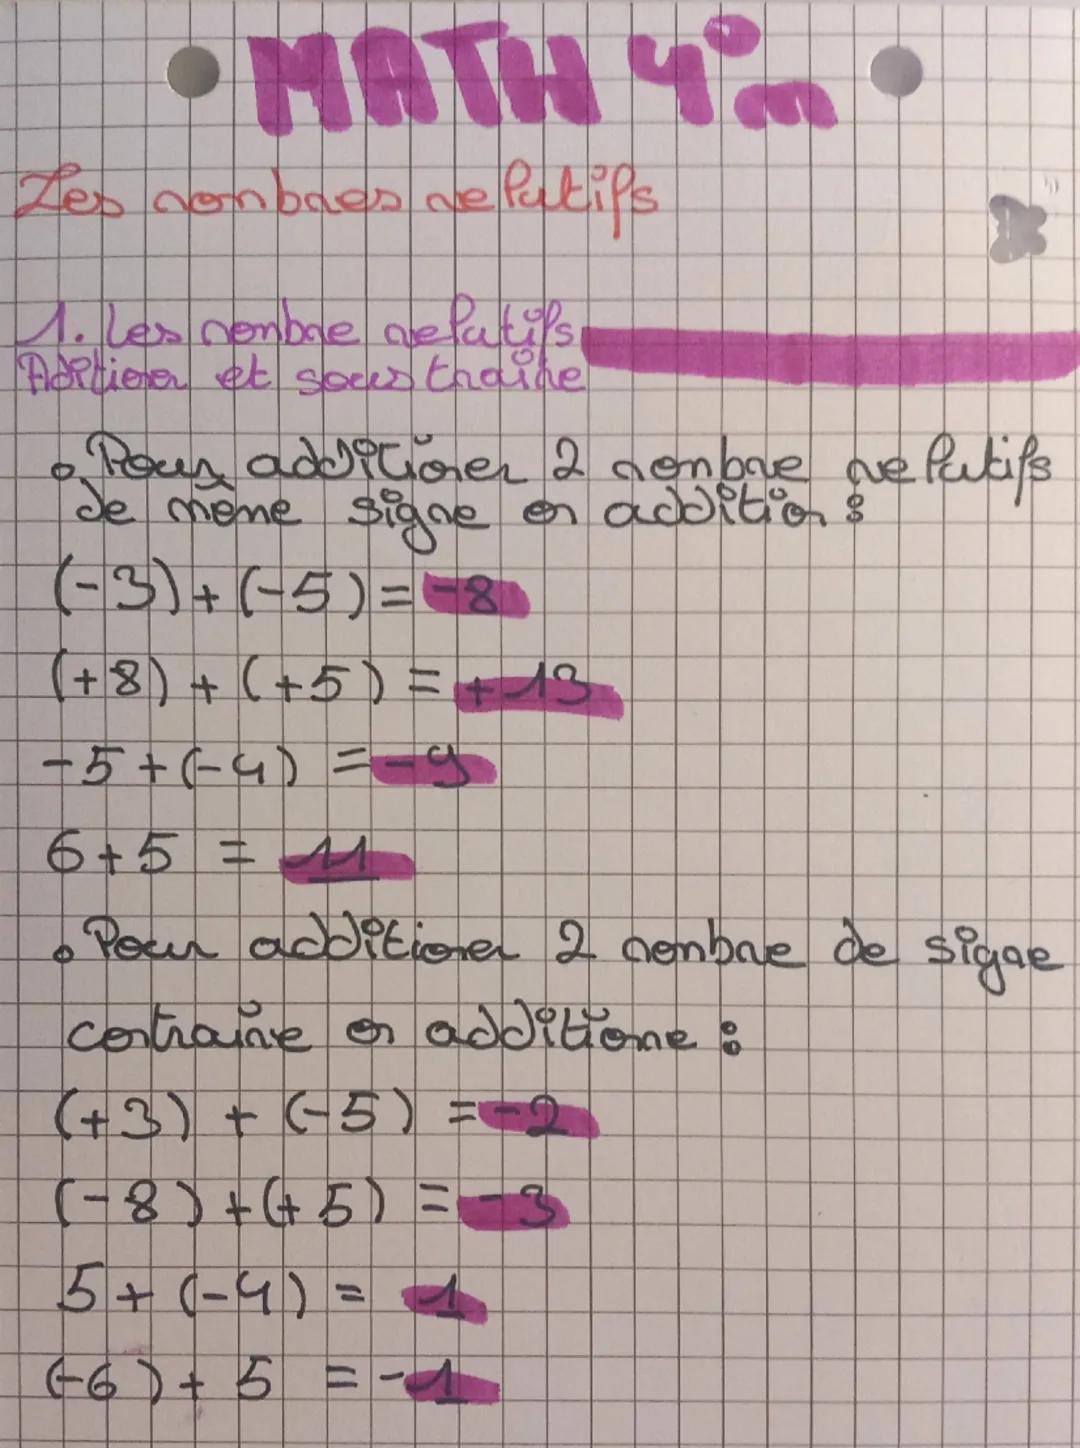 MATH 4°m
Les nombres relatifs
1. Les nombre relatifs
Aditioner et soustraire
• Pour additioner 2 nombre relatifs
de même signe on addition :
(-3) + (-5) = -8
(+8) + (+5) = +13
-5 + (-4) = -9
6 + 5 = 11
• Pour additioner 2 nombre de signe
contraire on additione :
(+3) + (-5) = -2
(-8) + (+5) = -3
5 + (-4) = 1
(-6) + 5 = -1